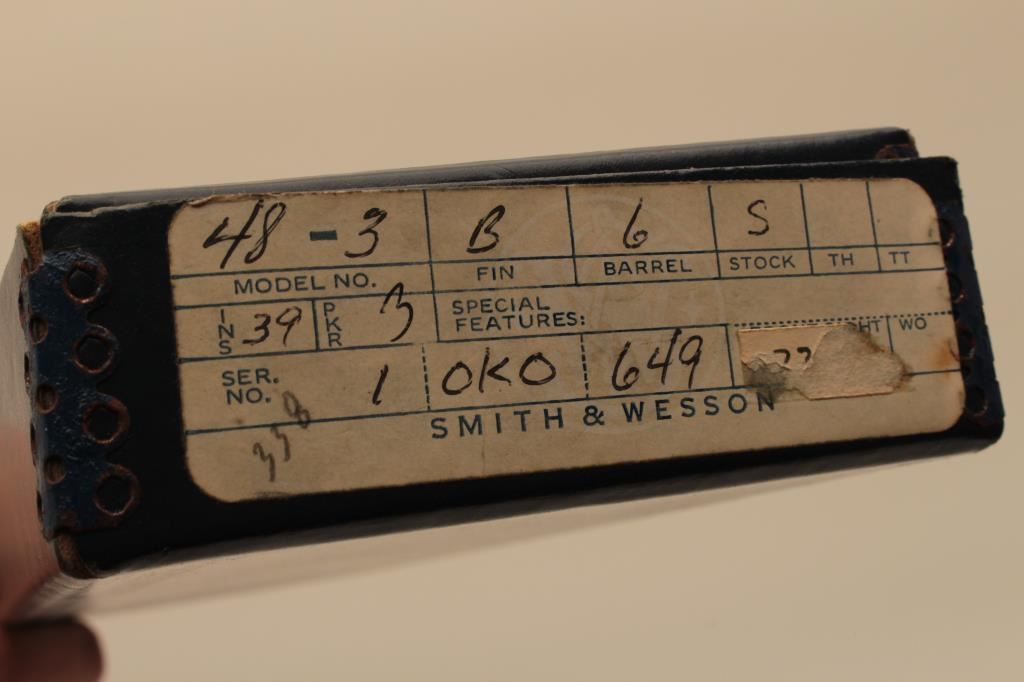 48 - 3 B 6 S
MODEL NO. FIN BARREL STOCK TH TT
INS 39 PKR 3 SPECIAL FEATURES:
HT WO
SER. NO. 1 OKO 649 22
SMITH & WESSON
330